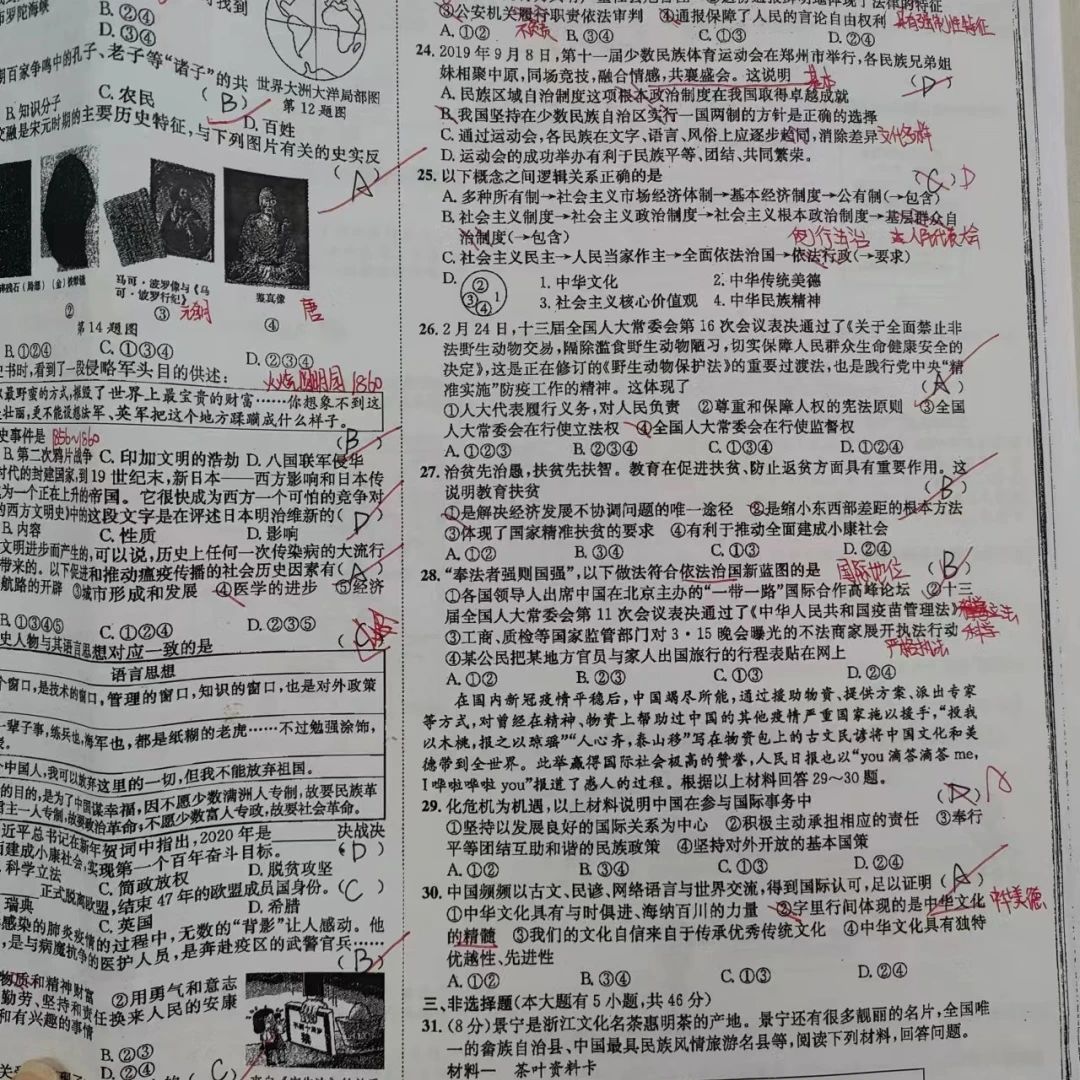 布罗陀海峡
B. ②④
D. ③④
找到
期百家争鸣中的孔子、老子等“诸子”的共
世界大洲大洋局部图
第12题图
B. 知识分子
C. 农民
(B)
D. 百姓
交融是宋元时期的主要历史特征,与下列图片有关的史实反
(A)
马可·波罗像与《马
可·波罗行纪》
鉴真像
② ③ 元朝 ④ 唐
第14题图
B. ①②④ C. ①③④ D. ②③④
史书时,看到了一段侵略军头目的供述:
火烧圆明园 1860
以最野蛮的方式,摧毁了世界上最宝贵的财富……你想象不到这
壮丽,更不能设想海军、英军把这个地方蹂躏成什么样子。
史事件是 1856~1860 (B)
B. 第二次鸦片战争 C. 印加文明的浩劫 D. 八国联军侵华
时代的封建国家,到19世纪末,新日本——西方影响和日本传
为一个正在上升的帝国。它很快成为西方一个可怕的竞争对
的西方文明史》中的这段文字是在评述日本明治维新的(D)
B. 内容 C. 性质 D. 影响
文明进步而产生的,可以说,历史上任何一次传染病的大流行
带来的。以下促进和推动瘟疫传播的社会历史因素有(A)
航路的开辟 ③城市形成和发展 ④医学的进步 ⑤经济
B. ①③④⑤ C. ①②④ D. ②③⑤
史人物与其语言思想对应一致的是
语言思想
个窗口,是技术的窗口,管理的窗口,知识的窗口,也是对外政策
一辈子事,练兵也,海军也,都是纸糊的老虎……不过勉强涂饰,
个中国人,我可以放弃这里的一切,但我不能放弃祖国。
的目的,是为了中国谋幸福,因不愿少数满洲人专制,故要民族革
君主一人专制,故要政治革命;不愿少数富人专政,故要社会革命。
近平总书记在新年贺词中指出,2020年是______决战决
面建成小康社会,实现第一个百年奋斗目标。 (D)
科学立法 C. 简政放权 D. 脱贫攻坚
正式脱离欧盟,结束47年的欧盟成员国身份。(C)
瑞典 C. 英国 D. 希腊
感染的肺炎疫情的过程中,无数的“背影”让人感动。他
,是与病魔抗争的医护人员,是奔赴疫区的武警官兵……
(B)
物质和精神财富 ②用勇气和意志
勤劳、坚持和责任换来人民的安康
和有兴趣的事情
B. ②③
D. ②④
(C)
③公安机关履行职责依法审判 ④通报保障了人民的言论自由权利 具有强制性特征
A. ①② B. ③④ C. ①③ D. ②④
24. 2019年9月8日,第十一届少数民族体育运动会在郑州市举行,各民族兄弟姐
妹相聚中原,同场竞技,融合情感,共襄盛会。这说明 基本 (D)
A. 民族区域自治制度这项根本政治制度在我国取得卓越成就
B. 我国坚持在少数民族自治区实行一国两制的方针是正确的选择
C. 通过运动会,各民族在文字、语言、风俗上应逐步趋同,消除差异 文化多样
D. 运动会的成功举办有利于民族平等、团结、共同繁荣。
25. 以下概念之间逻辑关系正确的是 (C) D
A. 多种所有制→社会主义市场经济体制→基本经济制度→公有制(→包含)
B. 社会主义制度→社会主义政治制度→社会主义根本政治制度→基层群众自
治制度(→包含)
人民代表大会
C. 社会主义民主→人民当家作主→全面依法治国→依法行政(→要求)
D. ② ③ ④ 1 1. 中华文化 2. 中华传统美德
3. 社会主义核心价值观 4. 中华民族精神
26. 2月24日,十三届全国人大常委会第16次会议表决通过了《关于全面禁止非
法野生动物交易,隔除滥食野生动物陋习,切实保障人民群众生命健康安全的
决定》,这是正在修订的《野生动物保护法》的重要过渡法,也是践行党中央“精
准实施”防疫工作的精神。这体现了 (A)
①人大代表履行义务,对人民负责 ②尊重和保障人权的宪法原则 ③全国
人大常委会在行使立法权 ④全国人大常委会在行使监督权
A. ①②③ B. ②③④ C. ①③④ D. ①②④
27. 治贫先治愚,扶贫先扶智。教育在促进扶贫、防止返贫方面具有重要作用。这
说明教育扶贫 (B)
①是解决经济发展不协调问题的唯一途径 ②是缩小东西部差距的根本方法
③体现了国家精准扶贫的要求 ④有利于推动全面建成小康社会
A. ①② B. ③④ C. ①③ D. ②④
28. “奉法者强则国强”,以下做法符合依法治国新蓝图的是 国际地位 (B)
①各国领导人出席中国在北京主办的“一带一路”国际合作高峰论坛 ②十三
届全国人大常委会第11次会议表决通过了《中华人民共和国疫苗管理法》 立法
③工商、质检等国家监管部门对3·15晚会曝光的不法商家展开执法行动 科学
④某公民把某地方官员与家人出国旅行的行程表贴在网上 严格执法
A. ①② B. ②③ C. ①③ D. ②④
在国内新冠疫情平稳后,中国竭尽所能,通过援助物资、提供方案、派出专家
等方式,对曾经在精神、物资上帮助过中国的其他疫情严重国家施以援手,“投我
以木桃,报之以琼瑶”“人心齐,泰山移”写在物资包上的古文民谚将中国文化和美
德带到全世界。此举赢得国际社会极高的赞誉,人民日报也以“you滴答滴答me,
I哗啦哗啦you”报道了感人的过程。根据以上材料回答29~30题。
29. 化危机为机遇,以上材料说明中国在参与国际事务中 (D) A
①坚持以发展良好的国际关系为中心 ②积极主动承担相应的责任 ③奉行
平等团结互助和谐的民族政策 ④坚持对外开放的基本国策
A. ①② B. ③④ C. ①③ D. ②④
30. 中国频频以古文、民谚、网络语言与世界交流,得到国际认可,足以证明(A)
①中华文化具有与时俱进、海纳百川的力量 ②字里行间体现的是中华文化 中华美德
的精髓 ③我们的文化自信来自于传承优秀传统文化 ④中华文化具有独特
优越性、先进性
A. ①② B. ③④ C. ①③ D. ②④
三、非选择题(本大题有5小题,共46分)
31. (8分)景宁是浙江文化名茶惠明茶的产地。景宁还有很多靓丽的名片,全国唯
一的畲族自治县、中国最具民族风情旅游名县等,阅读下列材料,回答问题。
材料一 茶叶资料卡